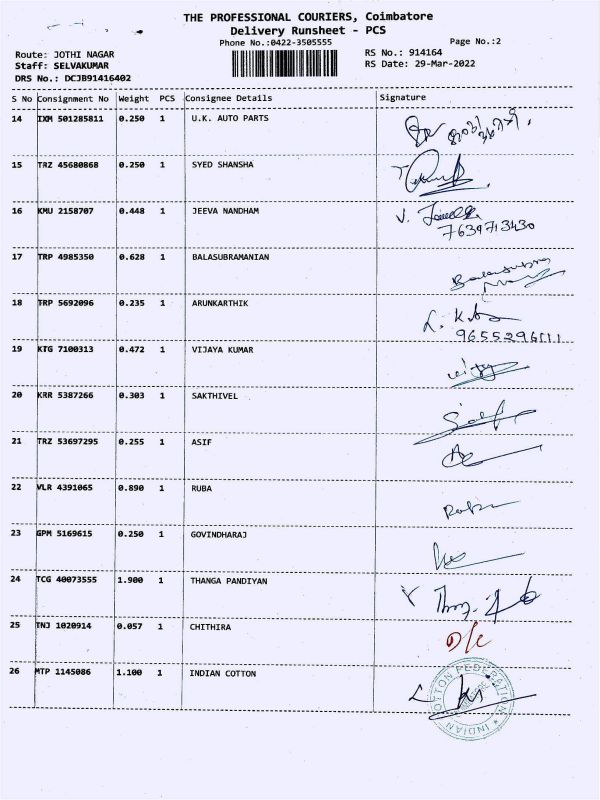 THE PROFESSIONAL COURIERS, Coimbatore
Delivery Runsheet - PCS
Phone No.:0422-3505555
Page No.:2
Route: JOTHI NAGAR
RS No.: 914164
Staff: SELVAKUMAR
RS Date: 29-Mar-2022
DRS No.: DCJB91416402
S No Consignment No Weight PCS Consignee Details Signature
14 IXM 501285811 0.250 1 U.K. AUTO PARTS
15 TRZ 45680868 0.250 1 SYED SHANSHA
16 KMU 2158707 0.448 1 JEEVA NANDHAM
7639713430
17 TRP 4985350 0.628 1 BALASUBRAMANIAN
18 TRP 5692096 0.235 1 ARUNKARTHIK
9655296111
19 KTG 7100313 0.472 1 VIJAYA KUMAR
20 KRR 5387266 0.303 1 SAKTHIVEL
21 TRZ 53697295 0.255 1 ASIF
22 VLR 4391065 0.890 1 RUBA
23 GPM 5169615 0.250 1 GOVINDHARAJ
24 TCG 40073555 1.900 1 THANGA PANDIYAN
25 TNJ 1020914 0.057 1 CHITHIRA
D/C
26 MTP 1145086 1.100 1 INDIAN COTTON
INDIAN COTTON FEDERATION